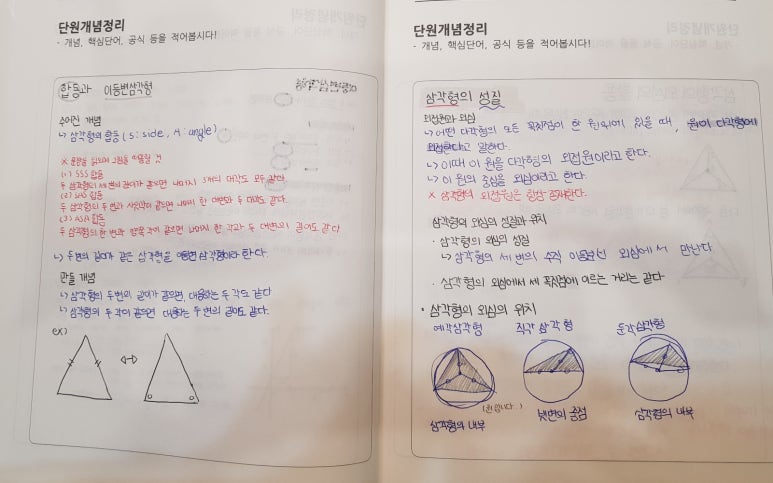 단원개념정리
- 개념, 핵심단어, 공식 등을 적어봅시다!
합동과 이등변삼각형
주어진 개념
↳ 삼각형의 합동 (S: side, A: angle)
※ 문장을 읽으며 그림을 떠올릴 것
(1) SSS 합동
두 삼각형의 세 변의 길이가 같으면 나머지 3개의 대각도 모두 같다.
(2) SAS 합동
두 삼각형의 두 변과 사잇각이 같으면 나머지 한 여변과 두 대각도 같다.
(3) ASA 합동
두 삼각형의 한 변과 양쪽 각이 같으면 나머지 한 각과 두 대변의 길이도 같다
↳ 두 변의 길이가 같은 삼각형을 이등변 삼각형이라 한다.
만들 개념
↳ 삼각형의 두 변의 길이가 같으면, 대응하는 두 각도 같다
↳ 삼각형의 두 각이 같으면 대응하는 두 변의 길이도 같다.
ex)
단원개념정리
- 개념, 핵심단어, 공식 등을 적어봅시다!
삼각형의 성질
외접원과 외심
↳ 어떤 다각형의 모든 꼭짓점이 한 원위에 있을 때, 원이 다각형에
외접한다고 말한다.
↳ 이때 이 원을 다각형의 외접원이라고 한다.
↳ 이 원의 중심을 외심이라고 한다.
※ 삼각형의 외접원은 항상 존재한다.
삼각형의 외심의 성질과 위치
· 삼각형의 외심의 성질
↳ 삼각형의 세 변의 수직 이등분선 외심에서 만난다
· 삼각형의 외심에서 세 꼭짓점에 이르는 거리는 같다
· 삼각형의 외심의 위치
예각삼각형 직각 삼각형 둔각 삼각형
삼각형의 내부 빗변의 중점 삼각형의 내부